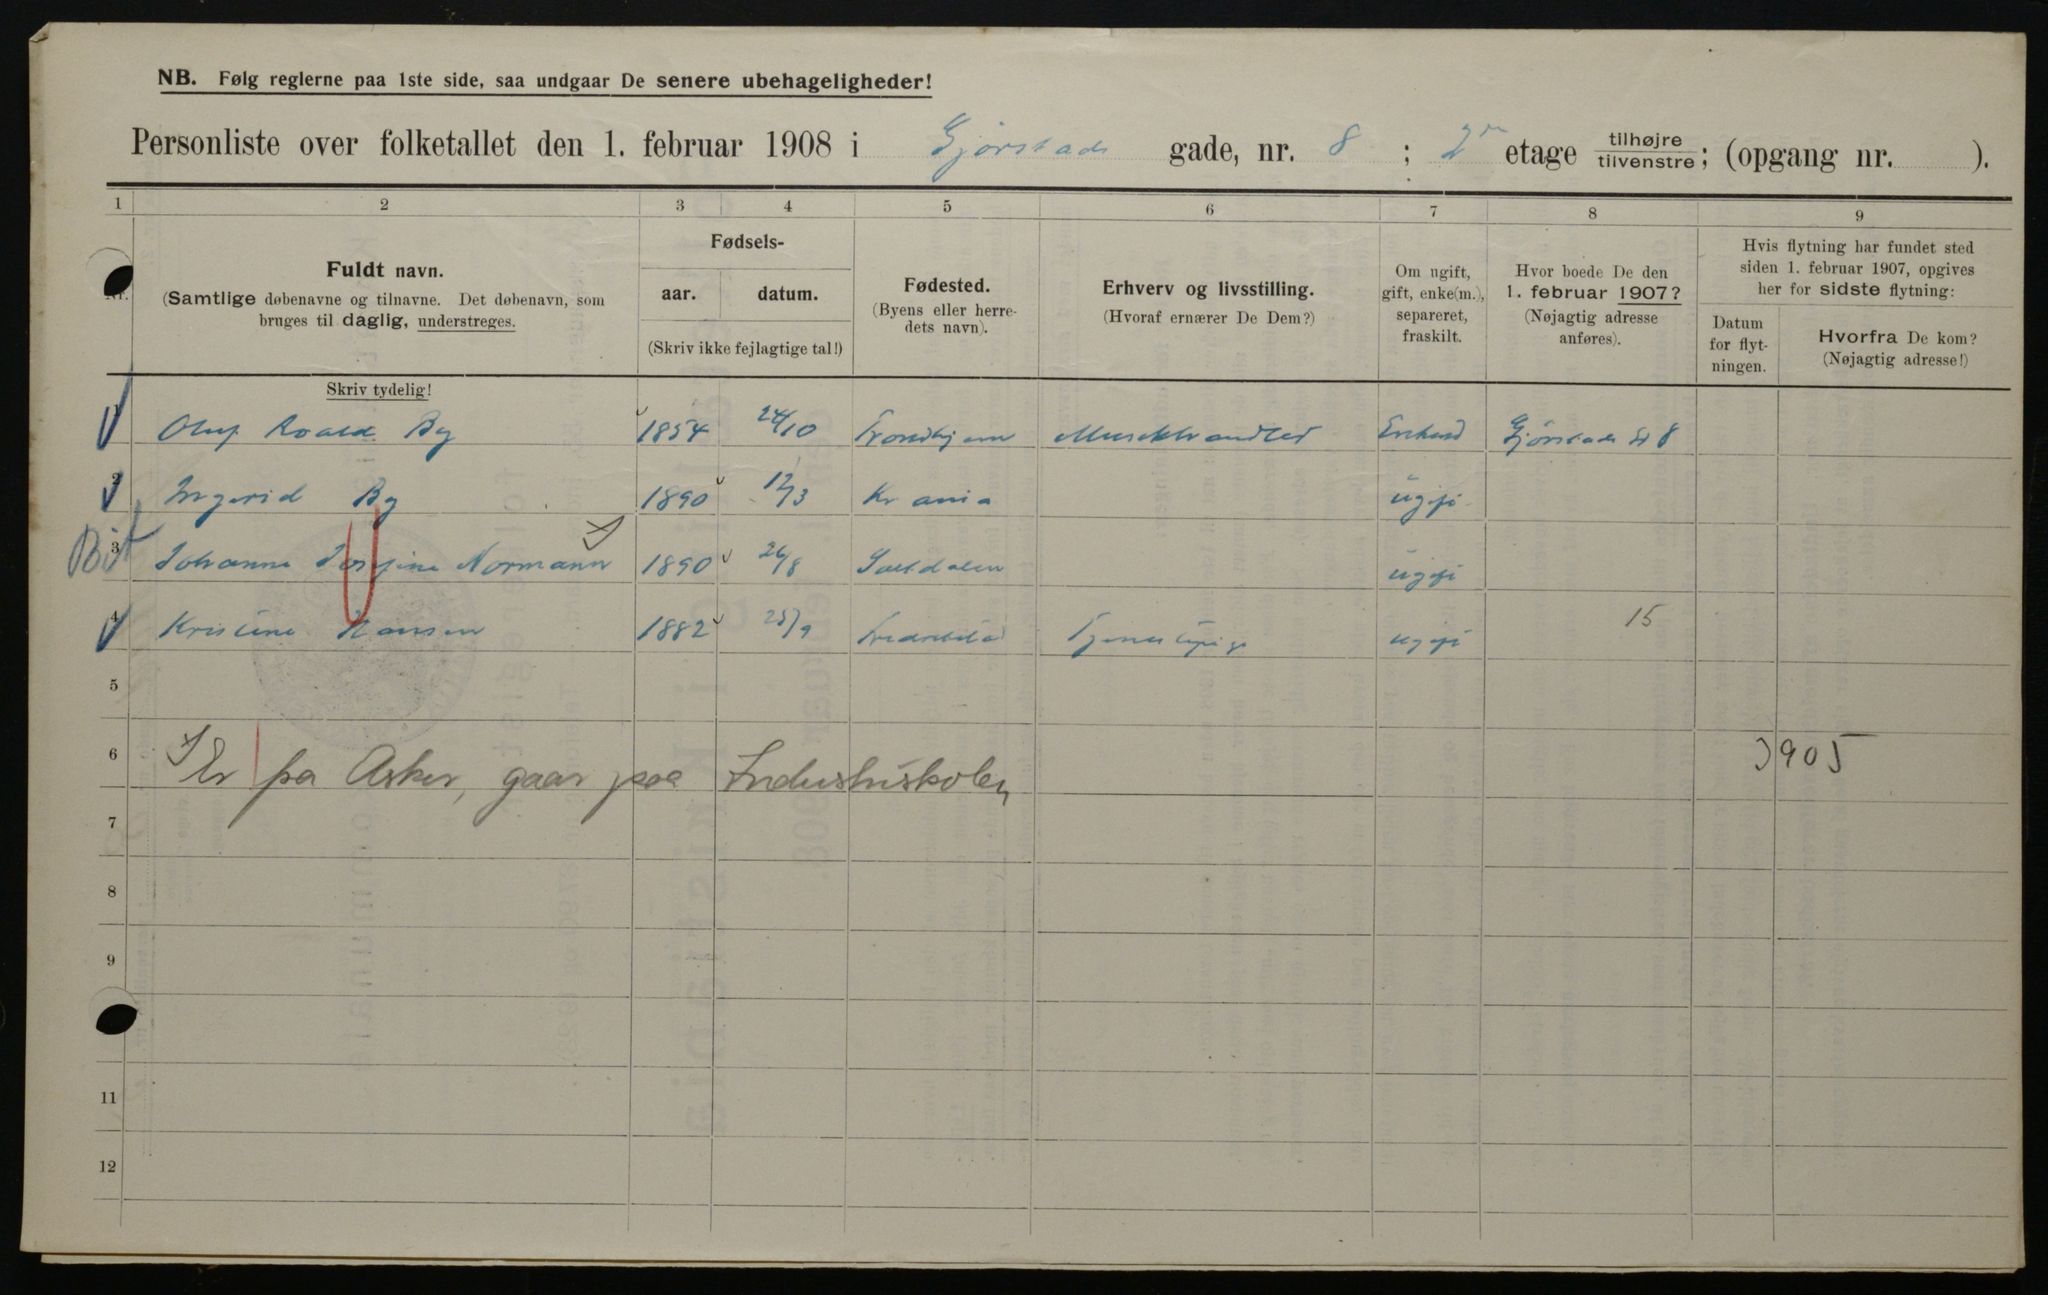 NB. Følg reglerne paa 1ste side, saa undgaar De senere ubehageligheder!
Personliste over folketallet den 1. februar 1908 i Gjørstads gade, nr. 8 ; 2 etage tilhøjre tilvenstre; (opgang nr. ).
1 2 3 4 5 6 7 8 9
Nr.
Fuldt navn.
(Samtlige døbenavne og tilnavne. Det døbenavn, som
bruges til daglig, understreges.
Skriv tydelig!
Fødsels-
aar. datum.
(Skriv ikke fejlagtige tal!)
Fødested.
(Byens eller herre-
dets navn).
Erhverv og livsstilling.
(Hvoraf ernærer De Dem?)
Om ugift,
gift, enke(m.),
separeret,
fraskilt.
Hvor boede De den
1. februar 1907?
(Nøjagtig adresse
anføres).
Hvis flytning har fundet sted
siden 1. februar 1907, opgives
her for sidste flytning:
Datum
for flyt-
ningen.
Hvorfra De kom?
(Nøjagtig adresse!)
1 Oluf Roald By 1854 24/10 Trondhjem Musikhandler Gjørstads 8
2 Ingerid By 1890 12/3 Kr ania ugift
3 Johanne Josefine Normann 1890 26/8 Saltdalen ugift
4 Kristine Hansen 1882 25/9 Fredrikstad Tjenestepige ugift 15
5
6 Er på Asker, gaar paa Industriskolen 3905
7
8
9
11
12